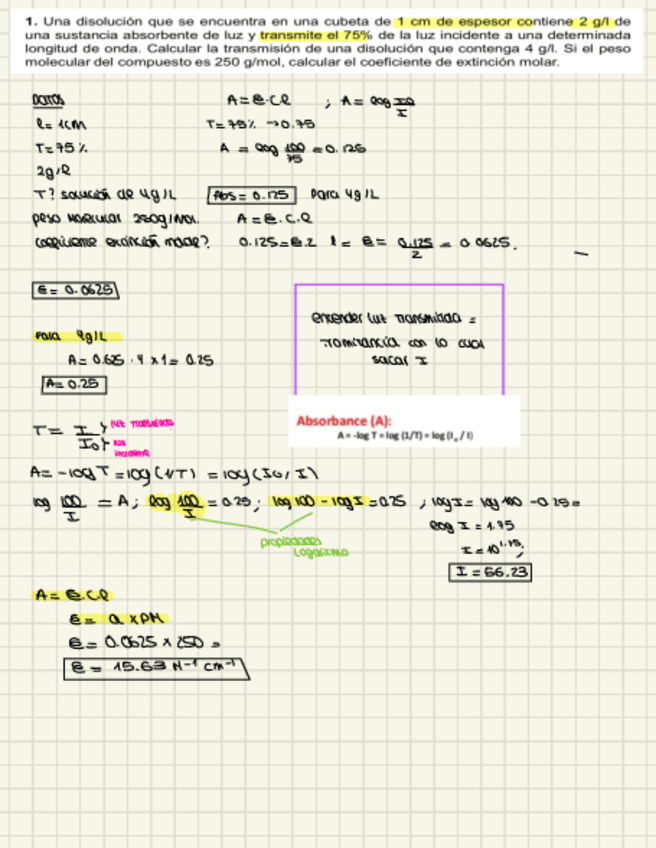 1. Una disolución que se encuentra en una cubeta de 1 cm de espesor contiene 2 g/l de
una sustancia absorbente de luz y transmite el 75% de la luz incidente a una determinada
longitud de onda. Calcular la transmisión de una disolución que contenga 4 g/l. Si el peso
molecular del compuesto es 250 g/mol, calcular el coeficiente de extinción molar.
DATOS
A = ε·Cl ; A = log I0/I
l = 1cm
T = 75% → 0.75
T = 75%
A = log 100/75 = 0.125
2g/l
T? solución de 4g/L
Abs = 0.125 para 4g/L
peso molecular 250g/mol.
A = ε.C.l
coeficiente extinción molar?
0.125 = ε.2 1 = ε = 0.125/2 = 0.0625.
ε = 0.0625
entender luz transmitida =
tramitancia con lo cual
sacar I
Para 4g/L
A = 0.625 · 4 x 1 = 0.25
A = 0.25
Absorbance (A):
A = -log T = log (1/T) = log (I₀ / I)
T = I/I0
luz transmitida
luz incidente
A = -log T = log(1/T) = log(I0/I)
log 100/I = A; log 100/I = 0.25; log 100 - log I = 0.25 ; log I = log 100 - 0.25 =
log I = 1.75
propiedades
logaritmo
I = 10^1.75;
I = 56.23
A = ε.Cl
ε = a x PM
ε = 0.0625 x 250 =
ε = 15.63 M⁻¹ cm⁻¹